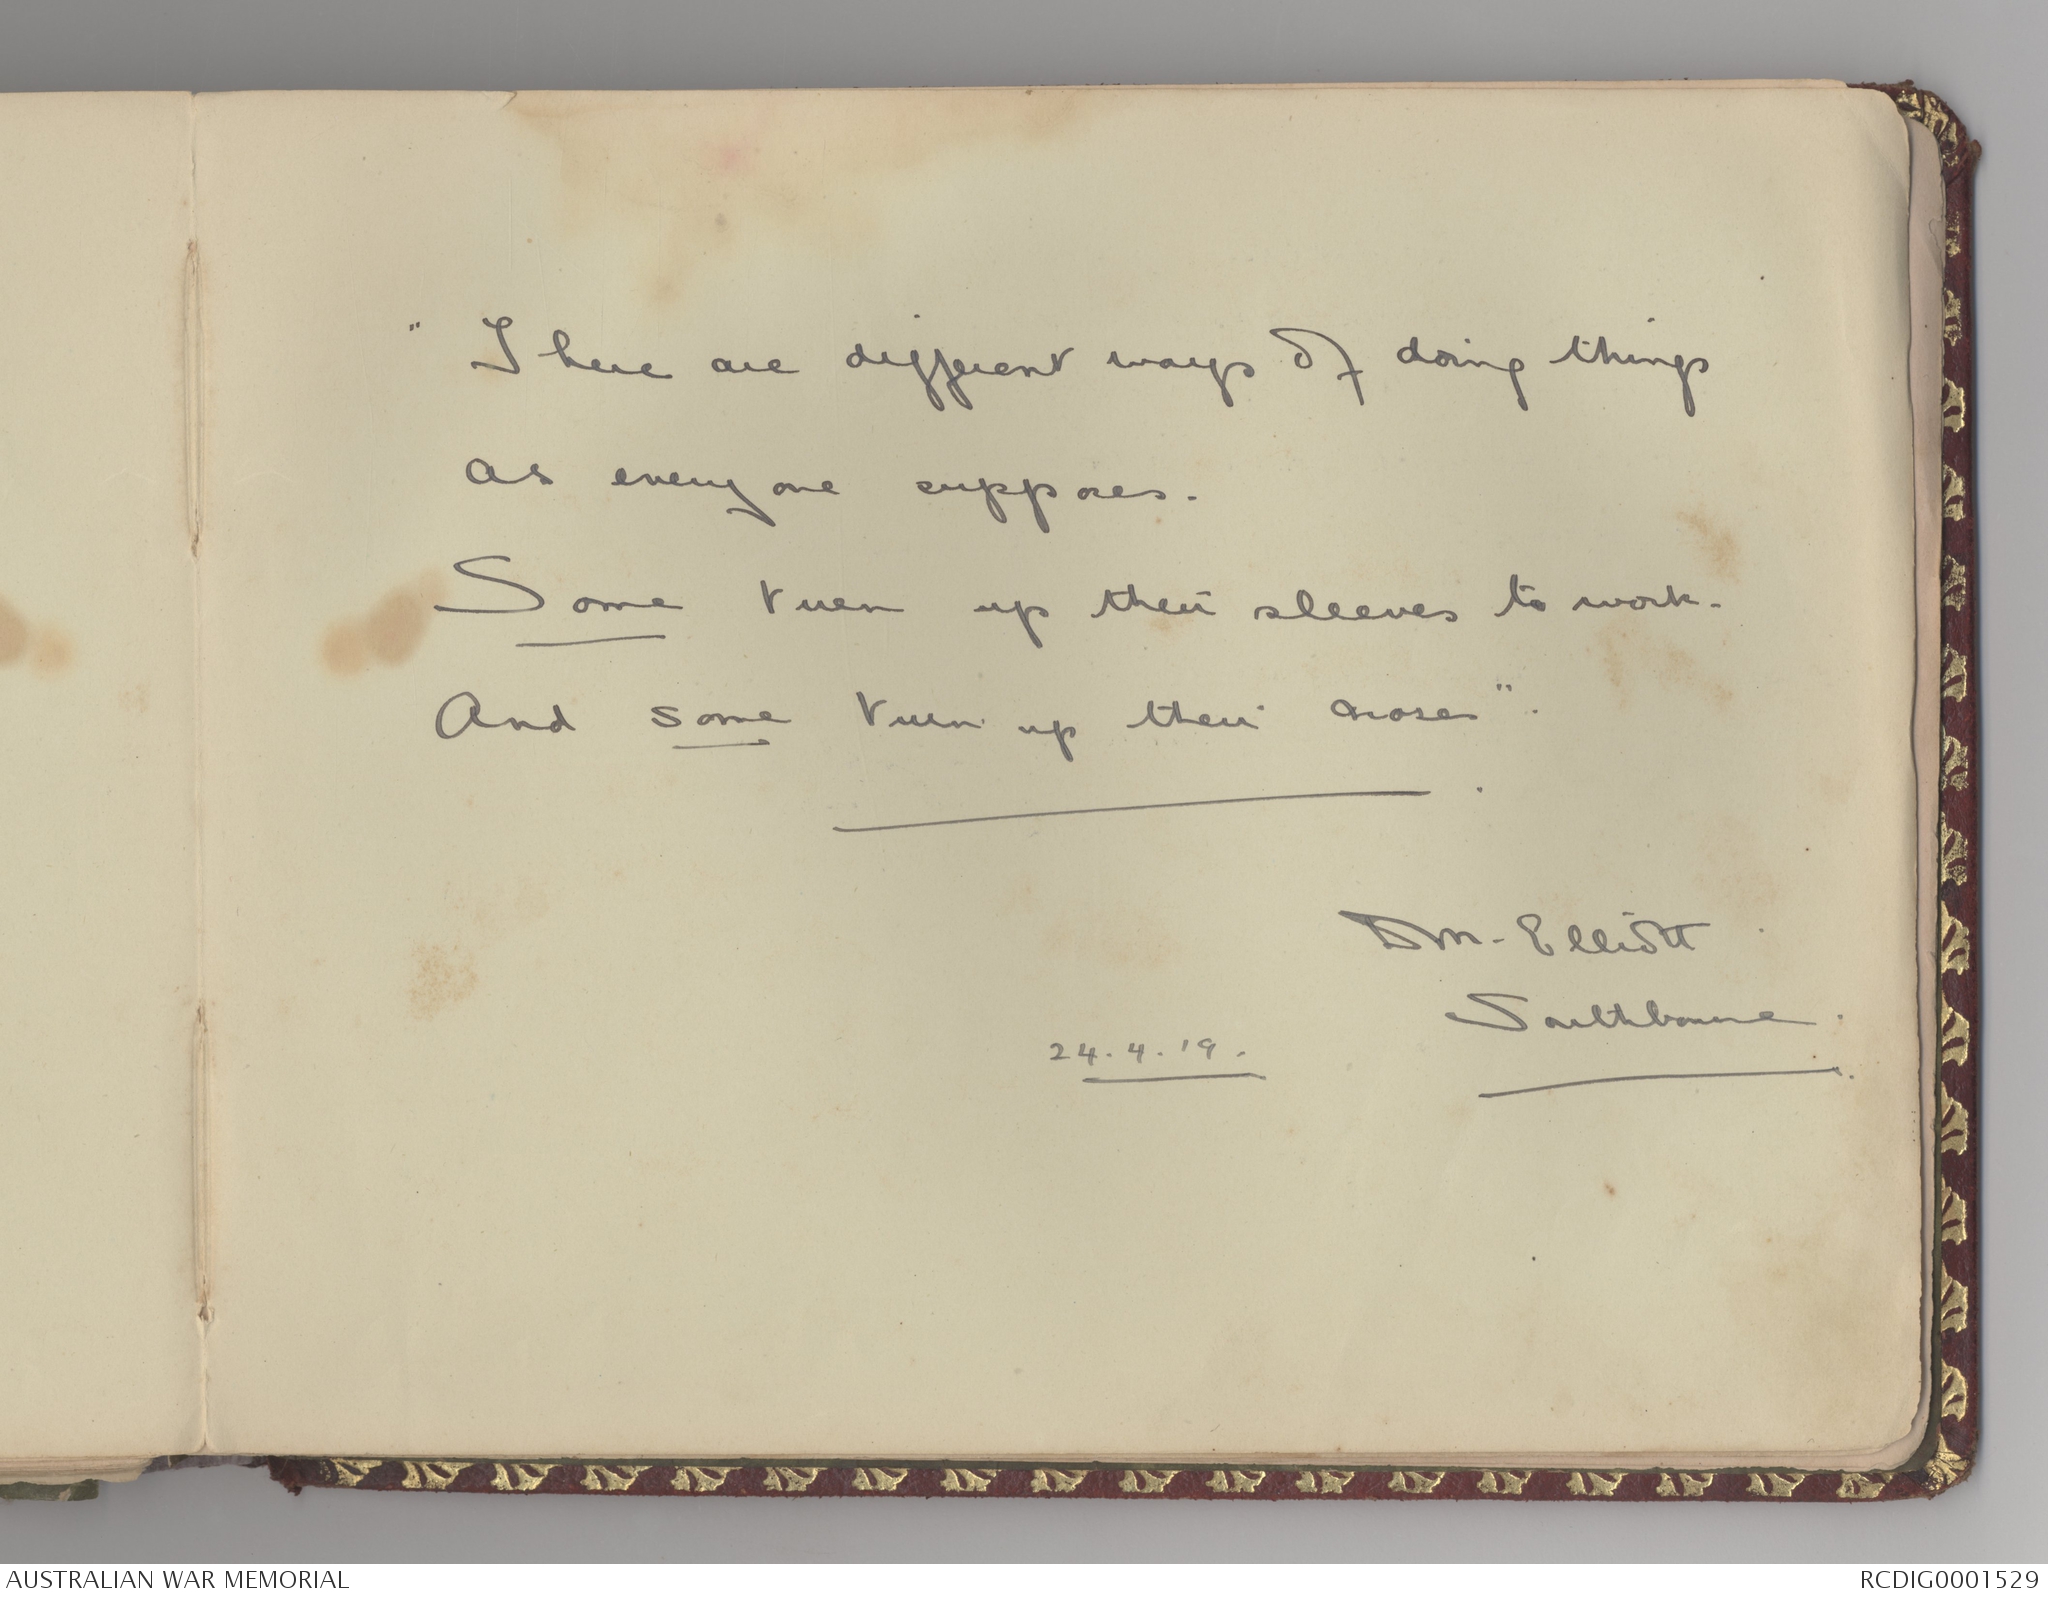 " There are different ways of doing things
as everyone supposes.
Some turn up their sleeves to work.
And some turn up their noses".
DM. Elliott
Southbourne.
24.4.19.
AUSTRALIAN WAR MEMORIAL
RCDIG0001529